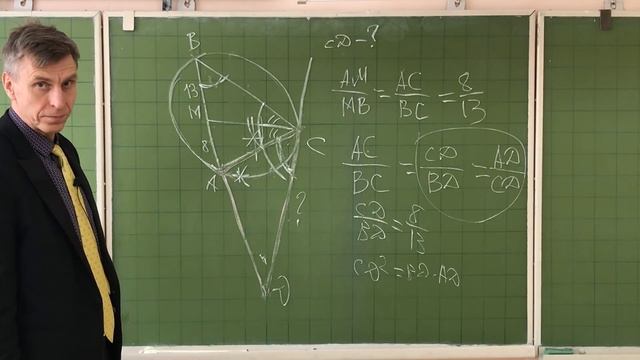 B
13
M
8
A
C
?
D
CD - ?
AM/MB = AC/BC = 8/13
AC/BC = CD/BD = AD/CD
CD/BD = 8/13
CD² = BD · AD